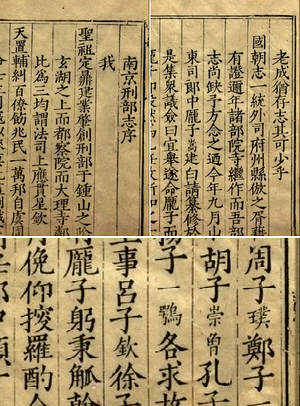 南京刑部志序
我
聖祖定鼎建業肇創刑部于鍾山之陰
玄湖之上而都察院而大理寺鄰
比為三均謂法司上應貫星欽
天置輔糾百僚勑兆民一萬邦自虞周
老成猶存志其可少乎
國朝志一統外司府州縣倣之胥
有證邇年諸部院寺繼作而吾部
志尚缺予方念之適今年九月山
東司郎中龐子嵩建白請纂修於
是集衆議僉曰宜舉遂命龐子而
周子璞鄭子一
胡子崇曾孔子
子一鶚各求故
主事呂子欽徐子
龐子躬秉觚幹
俛仰搜羅酌今
郎中顧